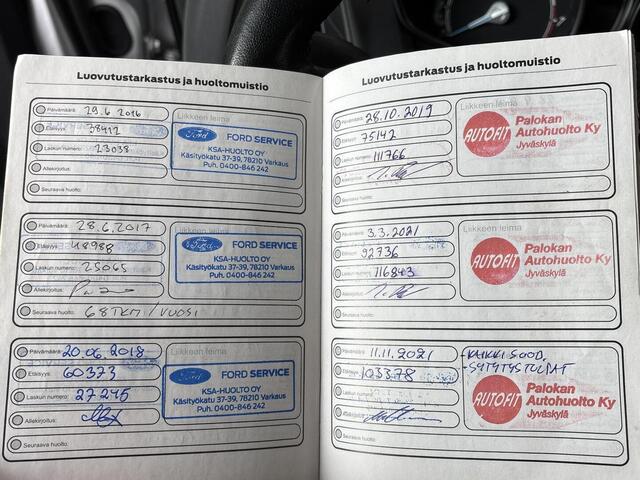 Luovutustarkastus ja huoltomuistio
Päivämäärä: 29.6 2016
Liikkeen leima
Etäisyys: 38412
Laskun numero: 23038
Allekirjoitus:
Seuraava huolto:
Ford
FORD SERVICE
KSA-HUOLTO OY
Käsityökatu 37-39, 78210 Varkaus
Puh. 0400-846 242
Päivämäärä: 28.6.2017
Liikkeen leima
Etäisyys: 48988
Laskun numero: 25065
Allekirjoitus:
Seuraava huolto: 68TKM/VUOSI
Ford
FORD SERVICE
KSA-HUOLTO OY
Käsityökatu 37-39, 78210 Varkaus
Puh. 0400-846 242
Päivämäärä: 20.06.2018
Liikkeen leima
Etäisyys: 60373
Laskun numero: 27245
Allekirjoitus:
Seuraava huolto:
Ford
FORD SERVICE
KSA-HUOLTO OY
Käsityökatu 37-39, 78210 Varkaus
Puh. 0400-846 242
Luovutustarkastus ja huoltomuistio
Päivämäärä: 28.10.2019
Liikkeen leima
Etäisyys: 75142
Laskun numero: 111766
Allekirjoitus:
Seuraava huolto:
AUTOFIT
Palokan
Autohuolto Ky
Jyväskylä
Päivämäärä: 3.3.2021
Liikkeen leima
Etäisyys: 92736
Laskun numero: 116843
Allekirjoitus:
Seuraava huolto:
AUTOFIT
Palokan
Autohuolto Ky
Jyväskylä
Päivämäärä: 11.11.2021
Etäisyys: 103378
Laskun numero:
Allekirjoitus:
Seuraava huolto:
-KAIKKI SOOD,
-SYTYTYSTULPAT
AUTOFIT
Palokan
Autohuolto Ky
Jyväskylä